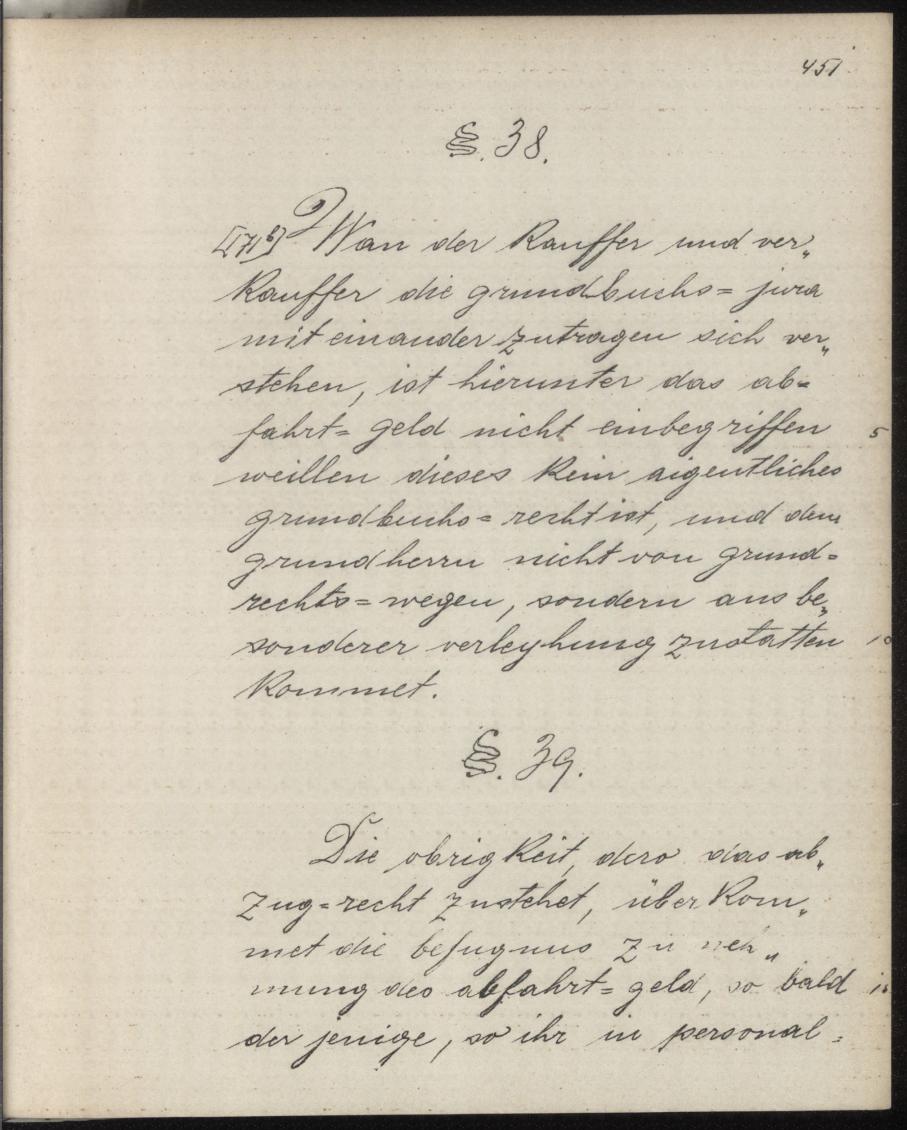 451
§. 38.
[171b] Wan der Kauffer und ver„
Kauffer die grundbuchs= jura
mit einander zutragen sich ver„
stehen, ist hierunter das ab=
fahrt= geld nicht einbegriffen 5
weillen dieses Kein aigentliches
grundbuchs= recht ist, und dem
grundherrn nicht von grund=
rechts= wegen, sondern aus be„
sonderer verleyhung zustatten 10
Kommet.
§. 39.
Die obrigKeit, dero das ab„
zug=recht zustehet, überKom„
met die befugnus zu neh„
mung des abfahrt= geld, so bald 15
der jenige, so ihr in personal=